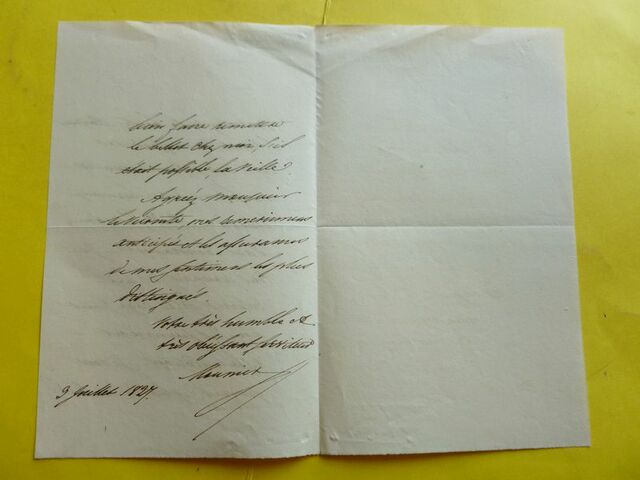 bien faire remettre
le billet chez moi, s'il
était possible, la veille.
Agréez, monsieur
le vicomte, mes remerciemens
anticipés et les assurances
de mes sentimens les plus
distingués.
Votre très humble et
très obéissant serviteur
3 Juillet 1827.